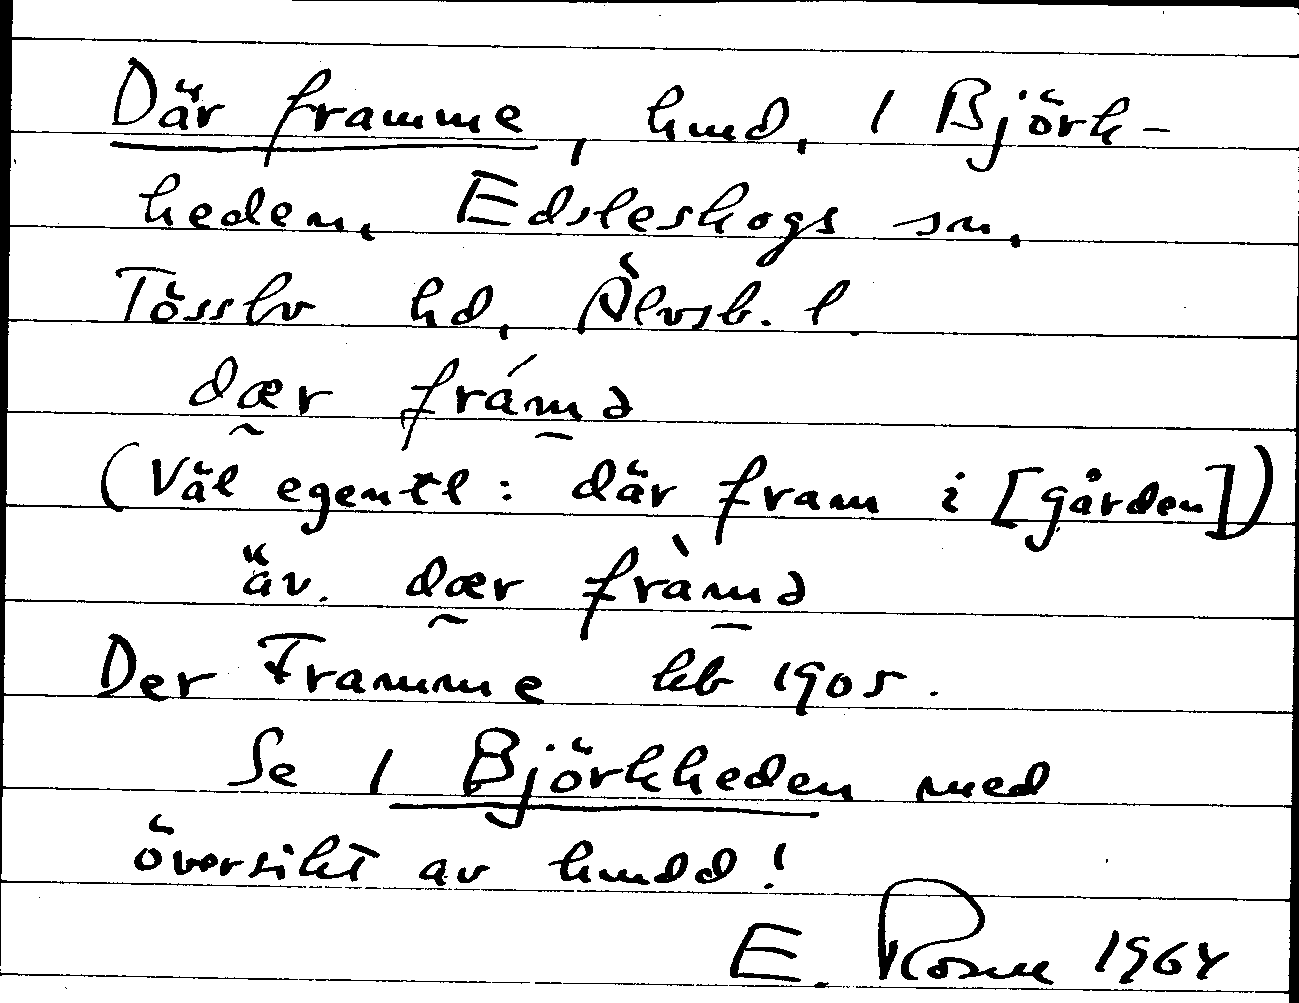 Där framme, hmd, 1 Björk-
heden, Edsleskogs sn,
Tössbo hd, Älvsb. l.
dær frámə
(Väl egentl: där fram i [gården])
äv. dær fràmə
Der Framme kb 1905.
Se 1 Björkheden med
översikt av hmdd!
E. Rosell 1964